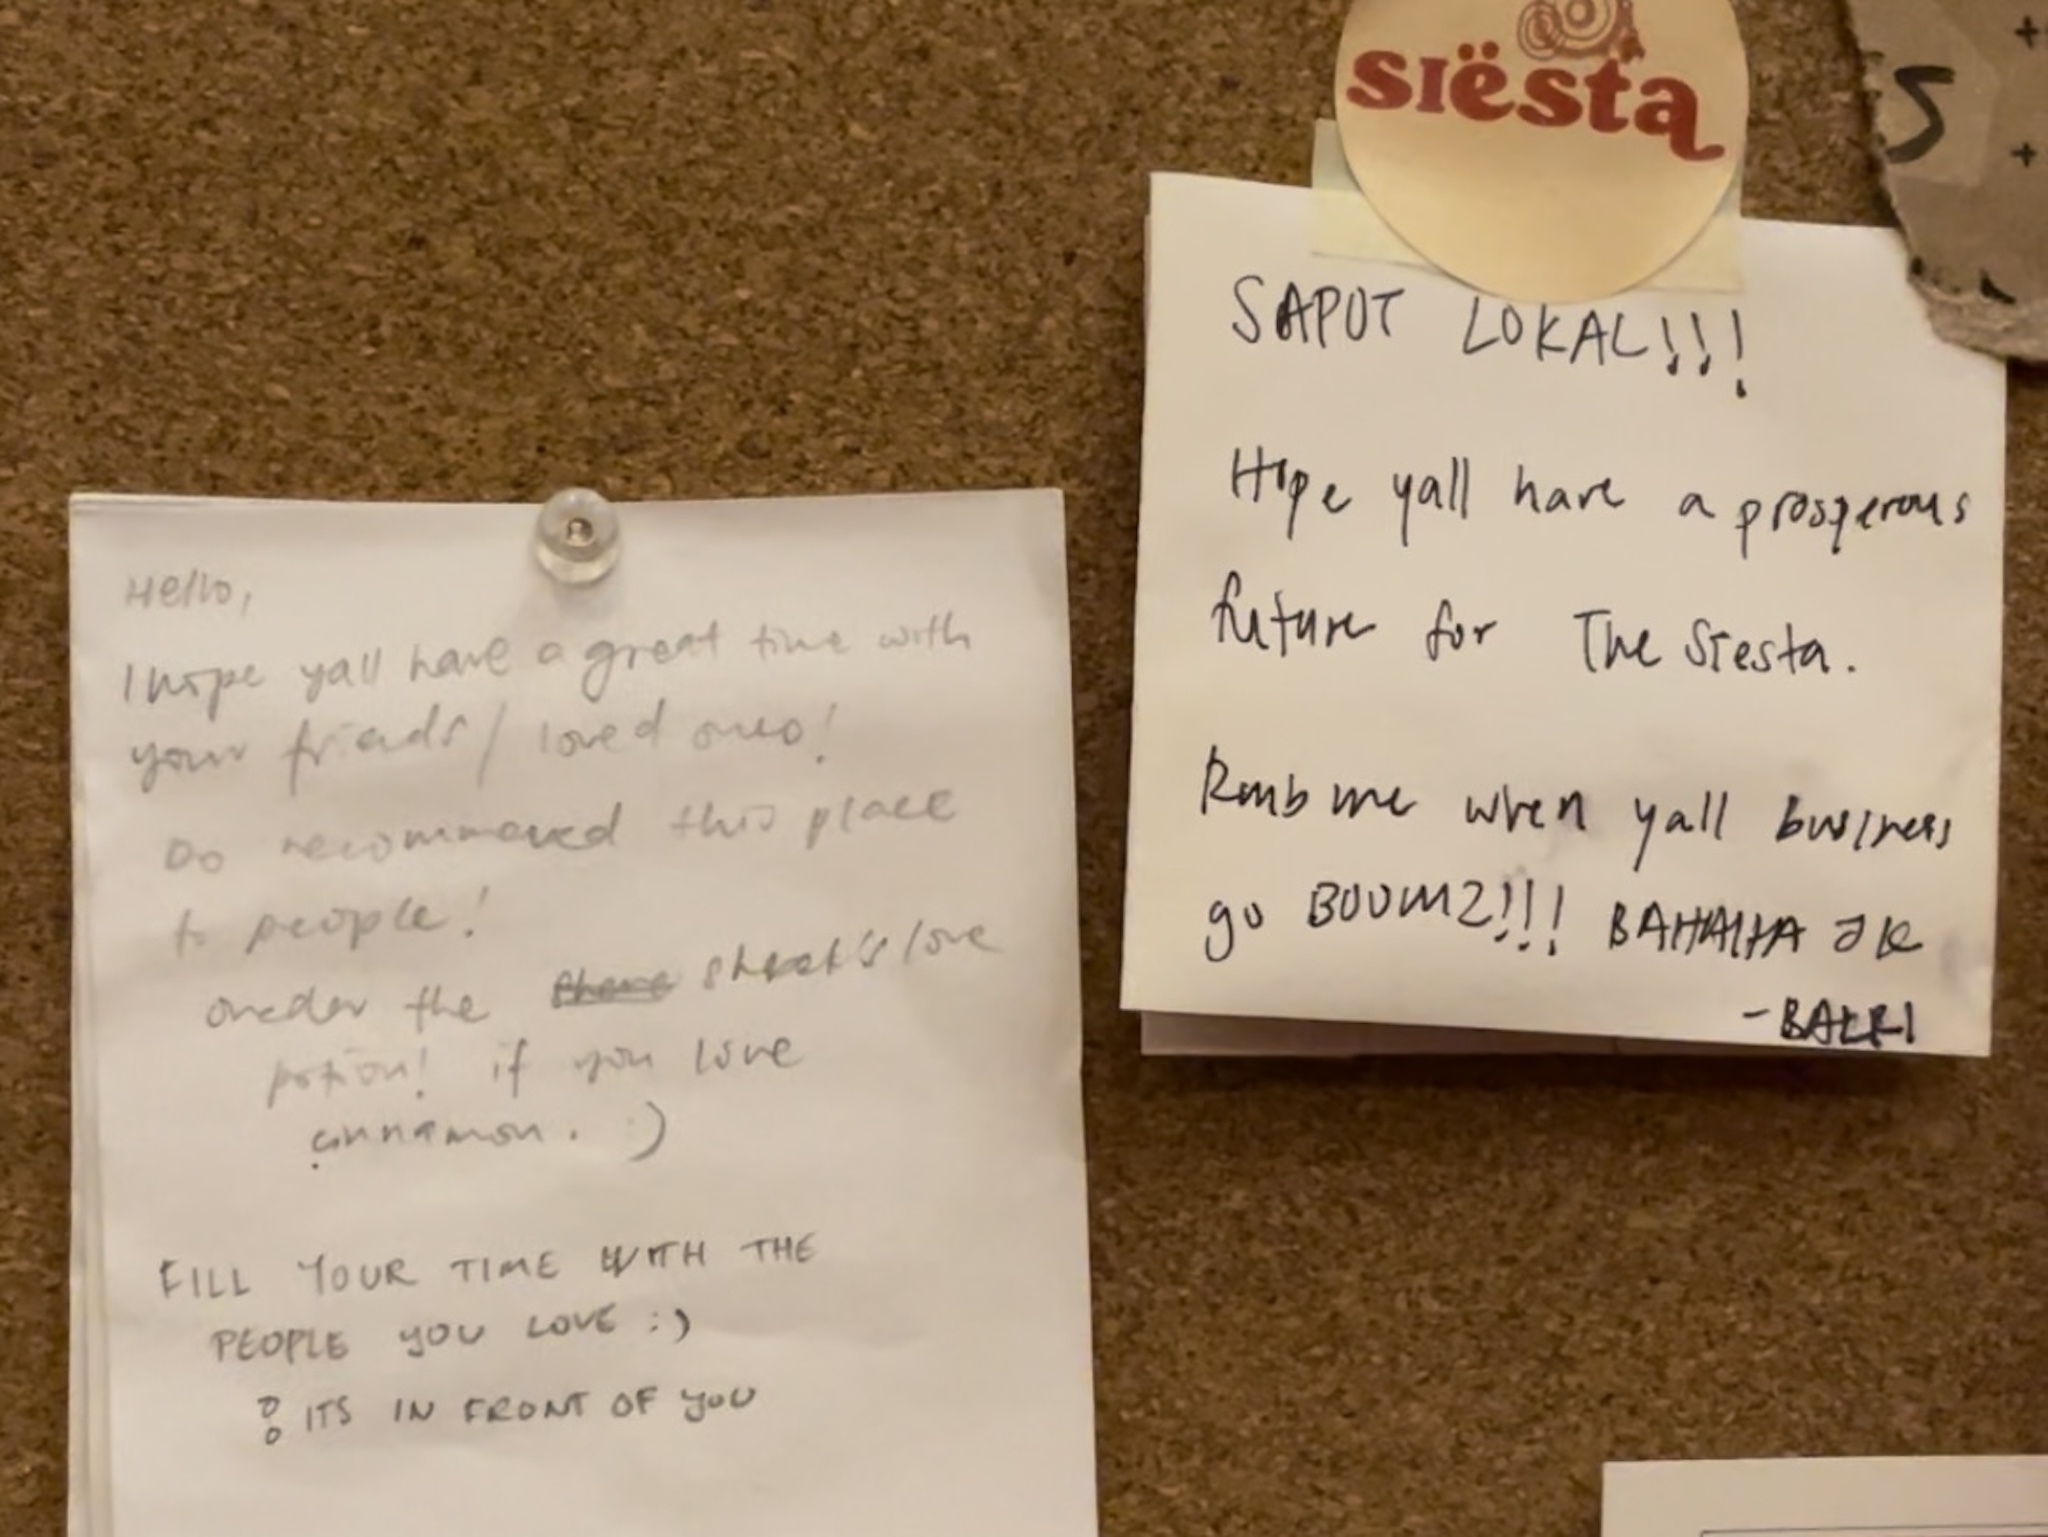 siësta
S
SAPOT LOKAL!!!
Hope yall have a prosperous
future for The Siesta.
Rmb me when yall business
go BOOMZ!!! BAHAHA JK
-BALRI
Hello,
I hope yall have a great time with
your friends/ loved ones!
Do recommened this place
to people!
oreder the shrek's love
potion! if you love
cinnamon. :)
FILL YOUR TIME WITH THE
PEOPLE YOU LOVE :)
ITS IN FRONT OF YOU